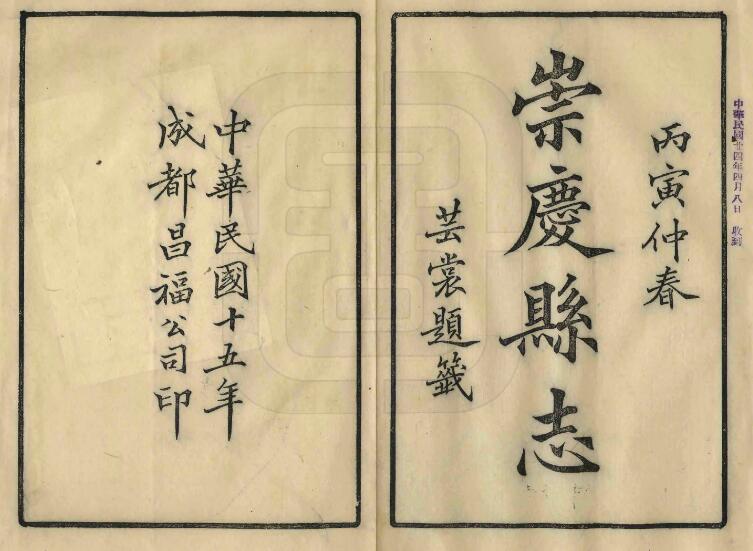 中華民國廿四年四月八日 收到
丙寅仲春
崇慶縣志
芸裳題籤
中華民國十五年
成都昌福公司印